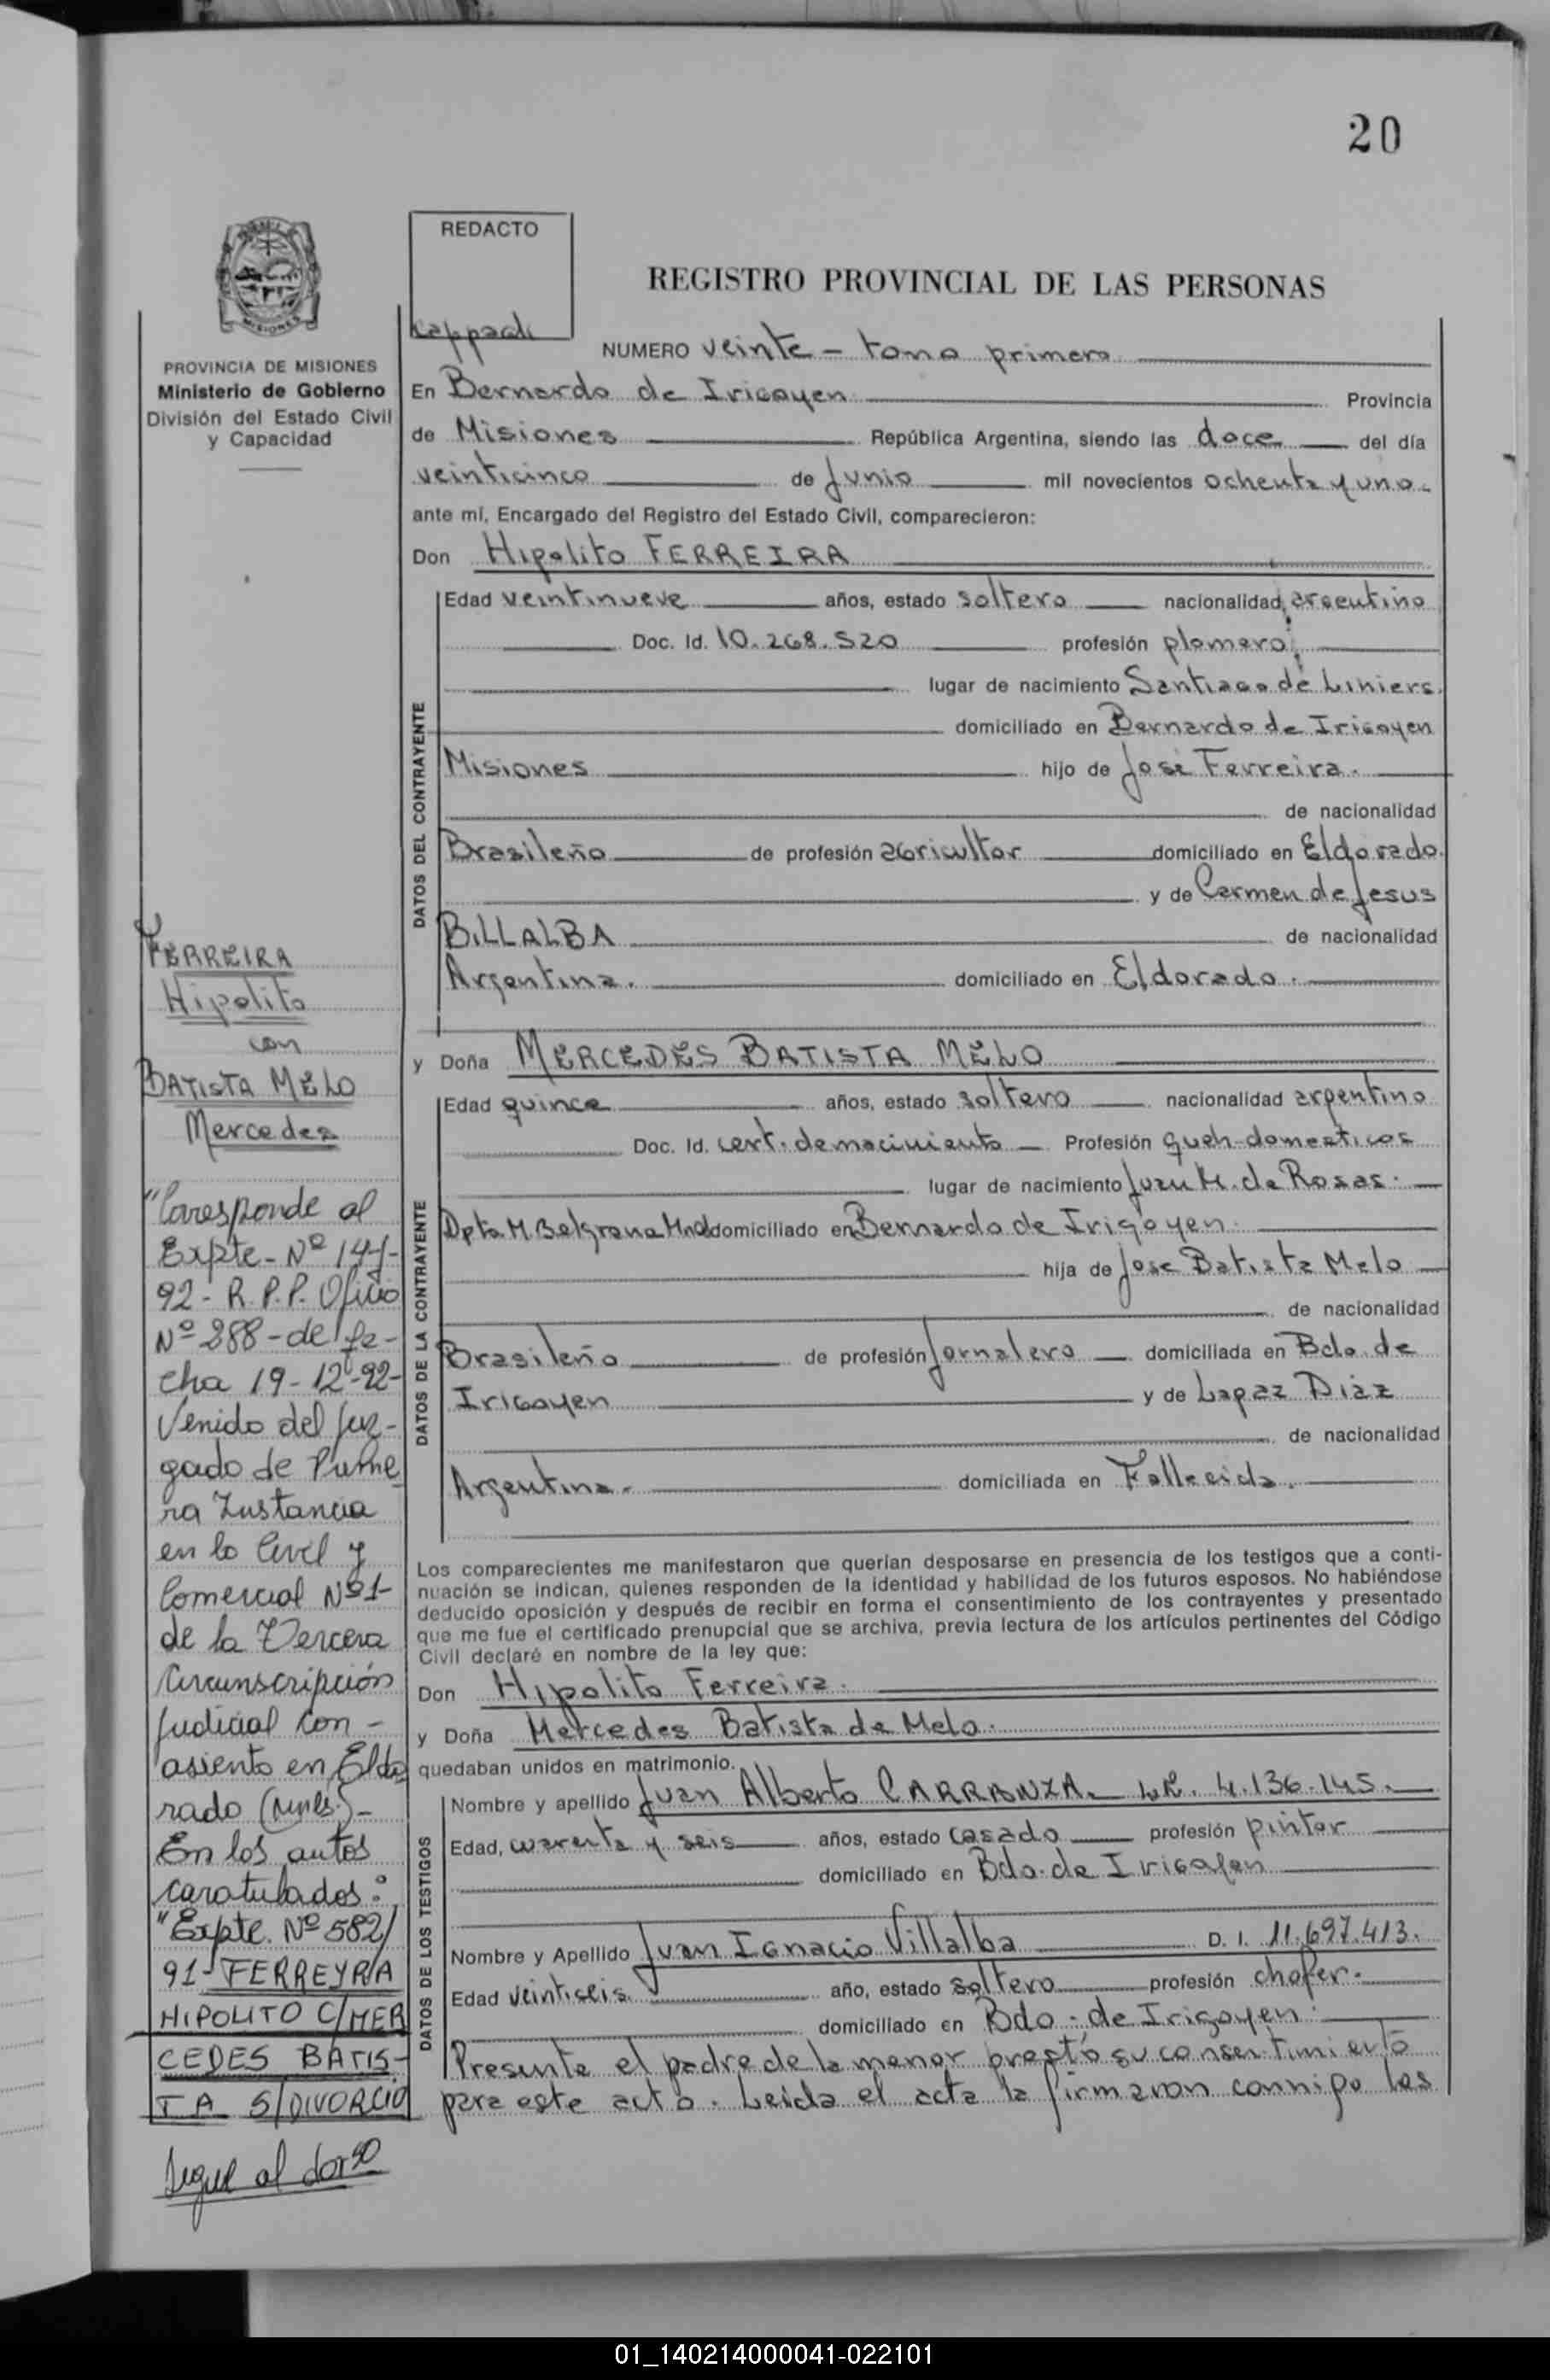 20
REDACTO
REGISTRO PROVINCIAL DE LAS PERSONAS
MISIONES
PROVINCIA DE MISIONES
Ministerio de Gobierno
División del Estado Civil
y Capacidad
NUMERO veinte - tomo primero
En Bernardo de Irigoyen Provincia
de Misiones República Argentina, siendo las doce del día
veinticinco de Junio mil novecientos ochenta y uno.
ante mí, Encargado del Registro del Estado Civil, comparecieron:
Don Hipolito FERREIRA
DATOS DEL CONTRAYENTE
Edad veintinueve años, estado soltero nacionalidad argentino
Doc. Id. 10.268.520 profesión plomero
lugar de nacimiento Santiago de Liniers.
domiciliado en Bernardo de Irigoyen
Misiones hijo de José Ferreira.
de nacionalidad
Brasileño de profesión agricultor domiciliado en Eldorado.
y de Carmen de Jesus
BILLALBA de nacionalidad
Argentina. domiciliado en Eldorado.
y Doña MERCEDES BATISTA MELO
DATOS DE LA CONTRAYENTE
Edad quince años, estado soltero nacionalidad argentino
Doc. Id. cert. de nacimiento Profesión queh-domesticos
lugar de nacimiento Juan M. de Rosas.
Dpto M. Belgrano Mnes domiciliado en Bernardo de Irigoyen.
hija de Jose Batista Melo
de nacionalidad
Brasileño de profesión Jornalero domiciliada en Bdo. de
Irigoyen y de Lapaz Diaz
de nacionalidad
Argentina. domiciliada en Fallecida.
Los comparecientes me manifestaron que querían desposarse en presencia de los testigos que a conti-
nuación se indican, quienes responden de la identidad y habilidad de los futuros esposos. No habiéndose
deducido oposición y después de recibir en forma el consentimiento de los contrayentes y presentado
que me fue el certificado prenupcial que se archiva, previa lectura de los artículos pertinentes del Código
Civil declaré en nombre de la ley que:
Don Hipolito Ferreira.
y Doña Mercedes Batista de Melo.
quedaban unidos en matrimonio.
DATOS DE LOS TESTIGOS
Nombre y apellido Juan Alberto CARRANZA. LE. 4.136.145.
Edad, cuarenta y seis años, estado casado profesión pintor
domiciliado en Bdo. de Irigoyen
Nombre y Apellido Juan Ignacio Villalba D. I. 11.697.413.
Edad veintiseis año, estado soltero profesión chofer.
domiciliado en Bdo. de Irigoyen.
Presente el padre de la menor prestó su consentimiento
para este acto. Leida el acta la firmaron conmigo los
FERREIRA
Hipolito
con
BATISTA MELO
Mercedes
"Corresponde al
Expte- Nº 144-
92- R.P.P. Oficio
Nº 288- de fe-
cha 19-12-92-
Venido del Juz-
gado de Prime
ra Instancia
en lo Civil y
Comercial Nº1-
de la Tercera
Circunscripción
Judicial con-
asiento en Eldo
rado (Mnes.)-
En los autos
caratulados:
"Expte. Nº 582/
91- FERREYRA
HIPOLITO C/MER
CEDES BATIS-
TA S/DIVORCIO
Sigue al dorso
01_140214000041-022101